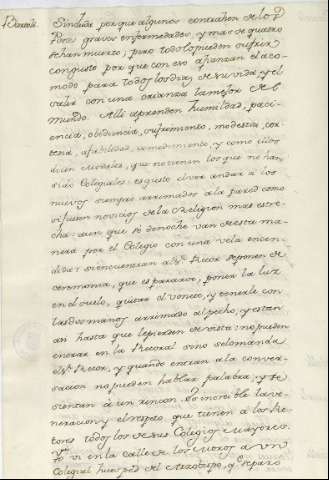 Sindicar porque algunos contrahen de los
Pozos graves enfermedades, y mas de quatro
se han muerto; pero todo lo pueden sufrir
con gusto por que con eso afianzan el aco-
modo para todos los dias de su vida y el
salir con una crianza la mejor del
mundo. Alli aprenden humildad, pacien-
cia, obediencia, sufrimiento, modestia, cor-
tesia, afabilidad, comedimiento, y como ellos
dicen que no tienen los que no han
sido Colegiales. es gusto el ver andar á los
nuevos siempre arrimados á la pared como
si fuesen novicios de la Religion mas estre-
cha: aun que si de noche van de esta ma-
nera por el Colegio con una vela encen-
dida: si encuentran al Sr. Rector se ponen de
ceremonia, que es pararse, poner la luz
en el suelo, quitarse el bonete, y tenerle con
las dos manos arrimado al pecho, y estar
asi hasta que le pierden de vista: no pueden
entrar en la Rectoral sino se lo manda
el Sr. Rector, y quando entran a la conver-
sacion no pueden hablar palabra, y se
sientan á un rincon. es increible la ve-
neracion y el respeto que tienen á los Re-
tores todos los de sus Colegios Mayores.
Yo vi en la calle de los Moros á un
Colegial huesped del Arzobispo, qe. reparó